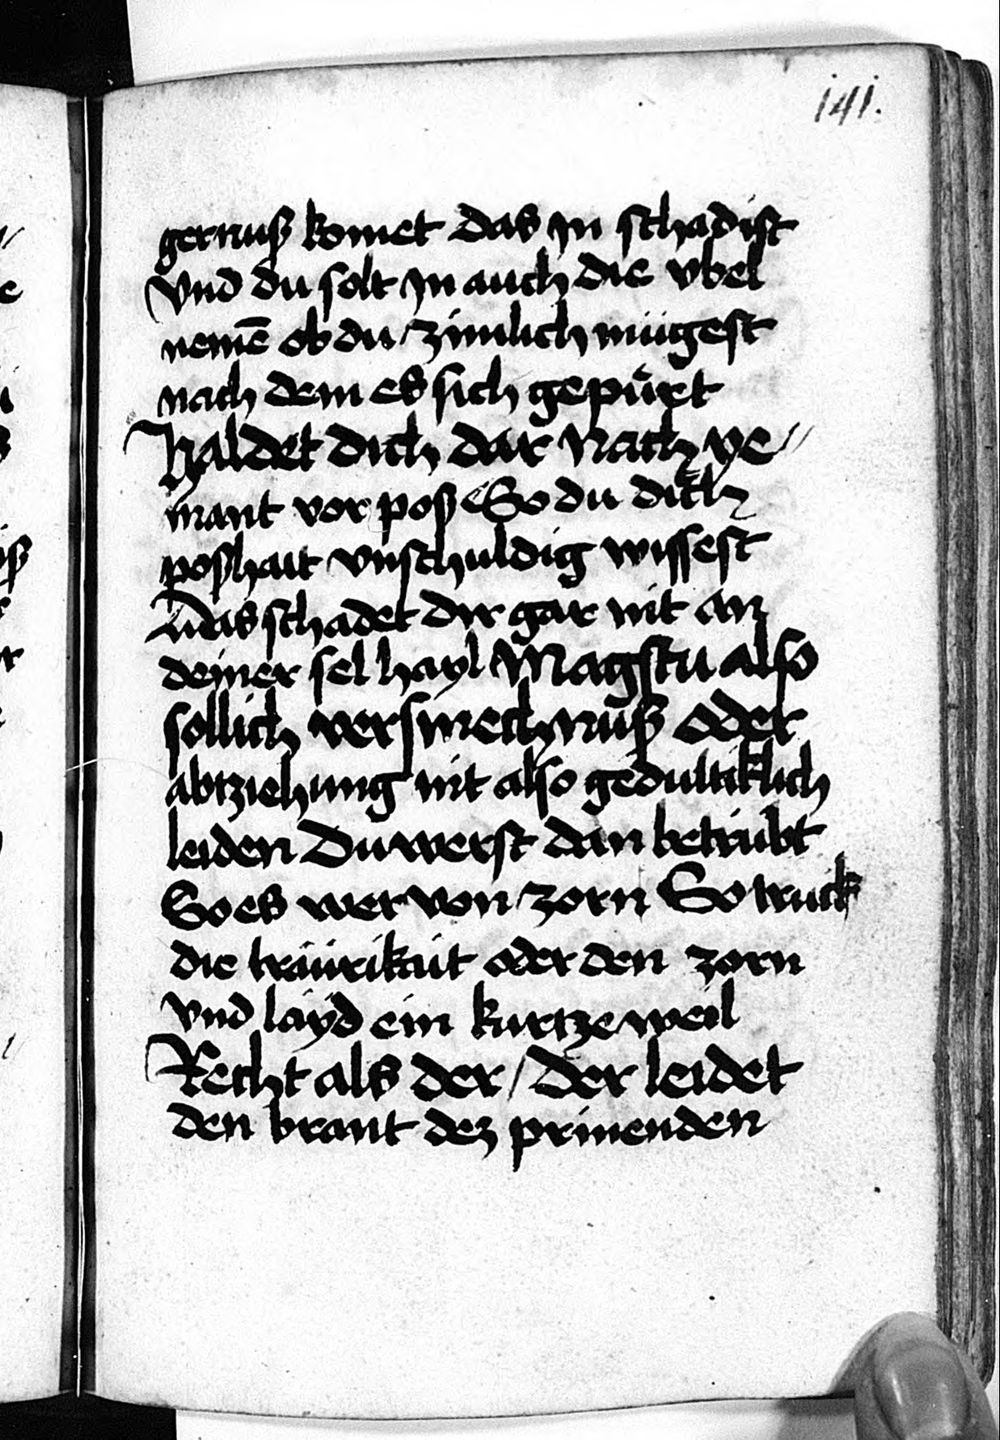 141.
gernuß komet das in schad ist
vnd du solt in auch die vbel
nemē ob du zimlich mügest
nach dem es sich gepürt
Haldet dich dar nach ye//
mant vor poß So du dich
poßhait vnschuldig wissest
das schadet dir gar nit an
deiner sel hayl Magstu also
sollich versmechnuß oder
abtziehung nit also gedultiklich
leiden Du werst dan betrübt
So es wer von zorn So truck
die träurikait oder den zorn
vnd layd ein kurtze weil
Recht als der / der leidet
den brant dez prinenden